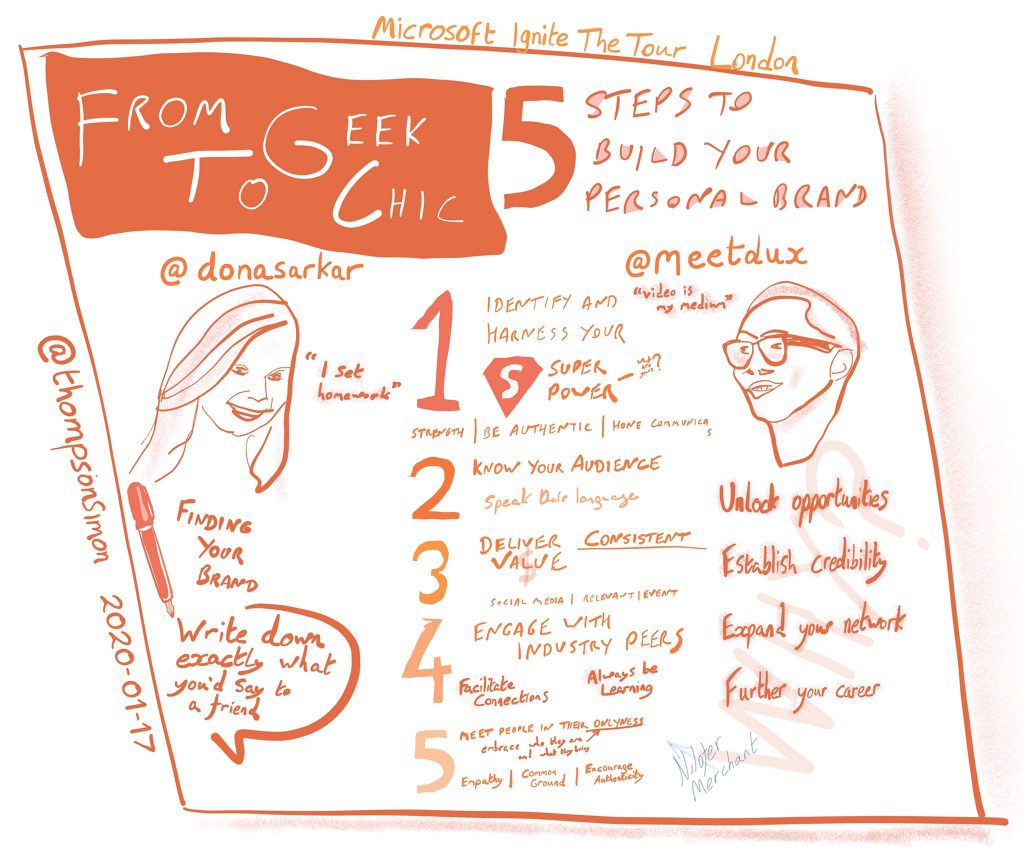 Microsoft Ignite The Tour London
FROM
TO GEEK
CHIC
5
STEPS TO
BUILD YOUR
PERSONAL BRAND
@donasarkar
@meetdux
"I set
homework"
"video is
my medium"
@thompsonSimon 2020-01-17
FINDING
YOUR
BRAND
Write down
exactly what
you'd say to
a friend
1
IDENTIFY AND
HARNESS YOUR
S
SUPER
POWER
what
are
yours?
STRENGTH | BE AUTHENTIC | HONE COMMUNICA
S
2
KNOW YOUR AUDIENCE
Speak language
3
DELIVER CONSISTENT
VALUE
$
SOCIAL MEDIA | RELEVANT | EVENT
4
ENGAGE WITH
INDUSTRY PEERS
Facilitate
Connections
Always be
Learning
5
MEET PEOPLE IN THEIR ONLYNESS
embrace who they are
and what they bring
Empathy | Common
Ground | Encourage
Authenticity
WHY?
Unlock opportunities
Establish credibility
Expand your network
Further your career
Nilofer
Merchant